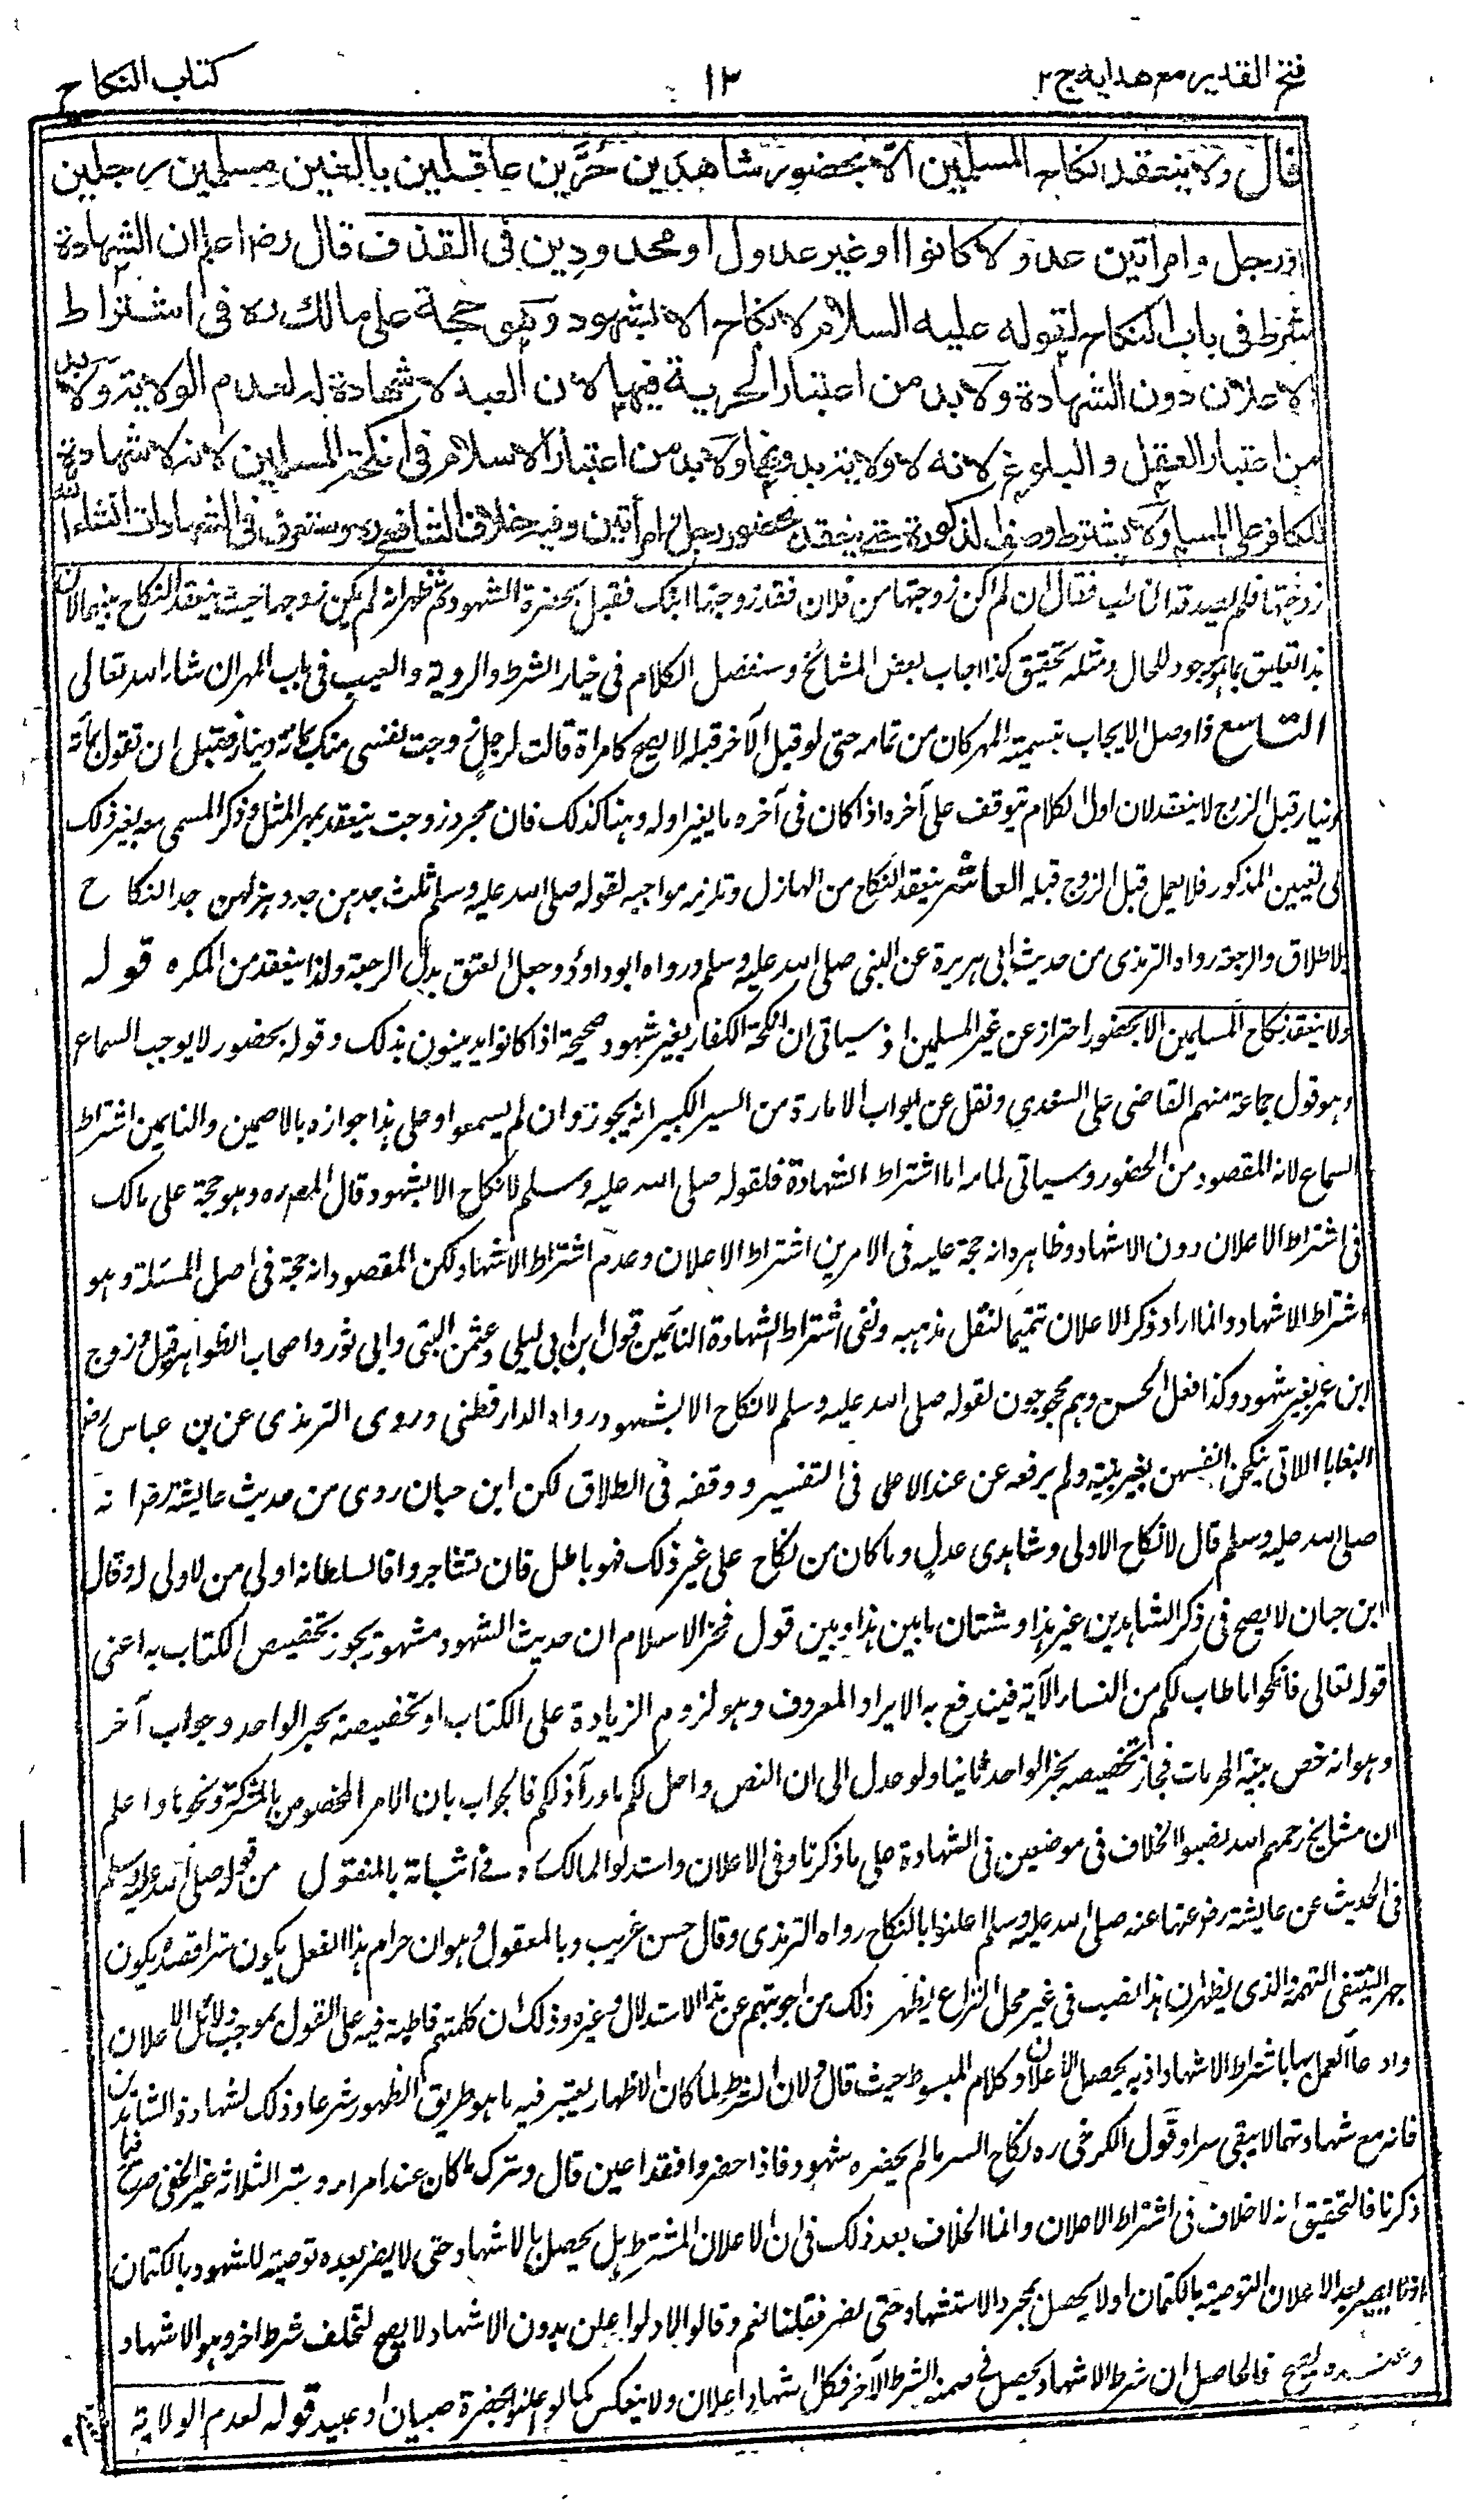 فتح القدير مع هدايه ج ٢
١٢
كتاب النكاح
قال ولا ينعقد نكاح المسلمين الا بحضور شاهدين حُرَّين عاقلين بالغين مسلمين رجلين
او رجل وامراتين عدولا كانوا او غير عدول او محدودين فى القذف قال رضى اعلم ان الشهادة
شرط فى باب النكاح لقوله عليه السلام لا نكاح الا بشهود وهو حجة على مالك ره فى اشتراط
الاعلان دون الشهادة ولابد من اعتبار الحرية فيها لان العبد لا شهادة له لعدم الولاية ولابد
من اعتبار العقل والبلوغ لانه لا ولاية بدونهما ولابد من اعتبار الاسلام فى انكحة المسلمين لانه لا شهادة
للكافر على المسلم ولا يشترط وصف الذكورة حتى ينعقد بحضور رجل وامرأتين وفيه خلاف الشافعى ره وستعرف فى الشهادات انشاء الله
زوجتها فلم يصدقه الخاطب فقال ان لم اكن زوجتها من فلان فقد زوجتها ابنك فقبل بحضرة الشهود ثم ظهر انه لم يكن زوجها حيث ينعقد النكاح بينهما لان
هذا التعليق بما هو موجود للحال ومثله تحقيق كذا اجاب بعض المشائخ وسنفصل الكلام فى خيار الشرط والروية والعيب فى باب المهر ان شاء الله تعالى
التاسع اذا وصل الايجاب بتسمية المهر كان من تمامه حتى لو قبل الآخر قبله لا يصح كامراة قالت لرجل زوجت نفسى منك بمائة دينار فقبل ان تقول بمائة
دينار قبل الزوج لا ينعقد لان اول الكلام يتوقف على آخره اذا كان فى آخره ما يغير اوله وهنا كذلك فان مجرد زوجت ينعقد بمهر المثل وذكر المسمى معه يغير ذلك
الى تعيين المذكور فلا يعمل قبل الزوج قبله العاشر ينعقد النكاح من الهازل وتلزمه مواجبه لقوله صلى الله عليه وسلم ثلث جدهن جد وهزلهن جد النكاح
والطلاق والرجعة رواه الترمذى من حديث ابى هريرة عن النبى صلى الله عليه وسلم ورواه ابو داؤد وجعل العتق بدل الرجعة ولذا ينعقد من المكره قوله
ولا ينعقد نكاح المسلمين الا بحضور احتراز عن غير المسلمين اذ سياتى ان انكحة الكفار بغير شهود صحيحة اذا كانوا يدينون بذلك وقوله بحضور لا يوجب السماع
وهو قول جماعة منهم القاضى على السغدي ونقل عن ابواب الامارة من السير الكبير انه يجوز وان لم يسمعوا وعلى هذا جوازه بالاصمين والنايمين اشتراط
السماع لانه المقصود من الحضور وسياتى تمامه اما اشتراط الشهادة فلقوله صلى الله عليه وسلم لا نكاح الا بشهود قال المص ره وهو حجة على مالك
فى اشتراط الاعلان دون الاشهاد وظاهره انه حجة عليه فى الامرين اشتراط الاعلان وعدم اشتراط الاشهاد لكن المقصود انه حجة فى اصل المسئلة وهو
اشتراط الاشهاد وانما اراد ذكر الاعلان تتميما لنقل مذهبه ونفى اشتراط الشهادة قول ابن ابى ليلى وعثمن البتى وابى ثور واصحاب الظواهر قيل وزوج
ابن عمر بغير شهود وكذا فعل الحسن وهم محجوجون لقوله صلى الله عليه وسلم لا نكاح الا بشهود رواه الدارقطنى وروى الترمذى عن بن عباس رض
البغايا اللاتى ينكحن انفسهن بغير بينة ولم يرفعه عن عبد الاعلى فى التفسير ووقفه فى الطلاق لكن ابن حبان روى من حديث عايشة رض انه
صلى الله عليه وسلم قال لا نكاح الا ولى وشاهدى عدل وما كان من نكاح على غير ذلك فهو باطل فان تشاجروا فالسلطان اولى من لا ولى له وقال
ابن حبان لا يصح فى ذكر الشاهدين غير هذا وشتان ما بين هذا وبين قول فخر الاسلام ان حديث الشهود مشهور يجوز تخصيص الكتاب به اعنى
قوله تعالى فانكحوا ما طاب لكم من النساء الآية فيندفع به الايراد المعروف وهو لزوم الزيادة على الكتاب او تخصيصه بخبر الواحد وجواب آخر
وهو انه خص بينة المحرمات فجاز تخصيصه بخبر الواحد ثانيا ولو عدل الى ان النص واحل لكم ما ورآء ذلكم فالجواب بان الامر المخصوص بالمشركة ونحوها واعلم
ان مشايخ رحمهم الله نصبوا الخلاف فى موضعين فى الشهادة على ما ذكرنا وفى الاعلان واستدلوا لمالك ره فى اثباته بالمنقول من قوله صلى الله عليه وسلم
فى الحديث عن عايشة رض عنها عنه صلى الله عليه وسلم اعلنوا بالنكاح رواه الترمذى وقال حسن غريب وبالمعقول وهو ان حرام هذا الفعل يكون سرا فضده يكون
جهرا لينتفى التهمة الذى يظهر ان هذا نصب فى غير محل النزاع يظهر ذلك من اجوبتهم عن هذا الاستدلال وغيره وذلك ان كلمتهم قاطبة فيه على القول بموجب دلائل الاعلان
وادعاء العمل بها باشتراط الاشهاد اذ به يحصل الاعلان وكلام المبسوط حيث قال ولان الشرط لما كان الاظهار يعتبر فيه ما هو طريق الظهور شرعا وذلك لشهادة الشاهدين
فانه مع شهادتهما لا يبقى سرا وقول الكرخى ره نكاح السر ما لم يحضره شهود فاذا حضروا فقد اعلن قال وسرك ما كان عند امرء وسر الثلاثة غير الخفى صريح فيما
ذكرنا فالتحقيق انه لا خلاف فى اشتراط الاعلان وانما الخلاف بعد ذلك فى ان الاعلان المشترط هل يحصل بالاشهاد حتى لا يضر بعده توصية للشهود بالكتمان
اذ لا يضر بعد الاعلان التوصية بالكتمان او لا يحصل بمجرد الاستشهاد حتى يضر فقلنا نعم وقالوا لا ولو اعلن بدون الاشهاد لا يصح لتخلف شرط اخر وهو الاشهاد
وعنده يصح فالحاصل ان شرط الاشهاد يحصل فى ضمنه الشرط الآخر فكل اشهاد اعلان ولا ينعكس كما لو اعلنوا بحضرة صبيان او عبيد قوله لعدم الولاية